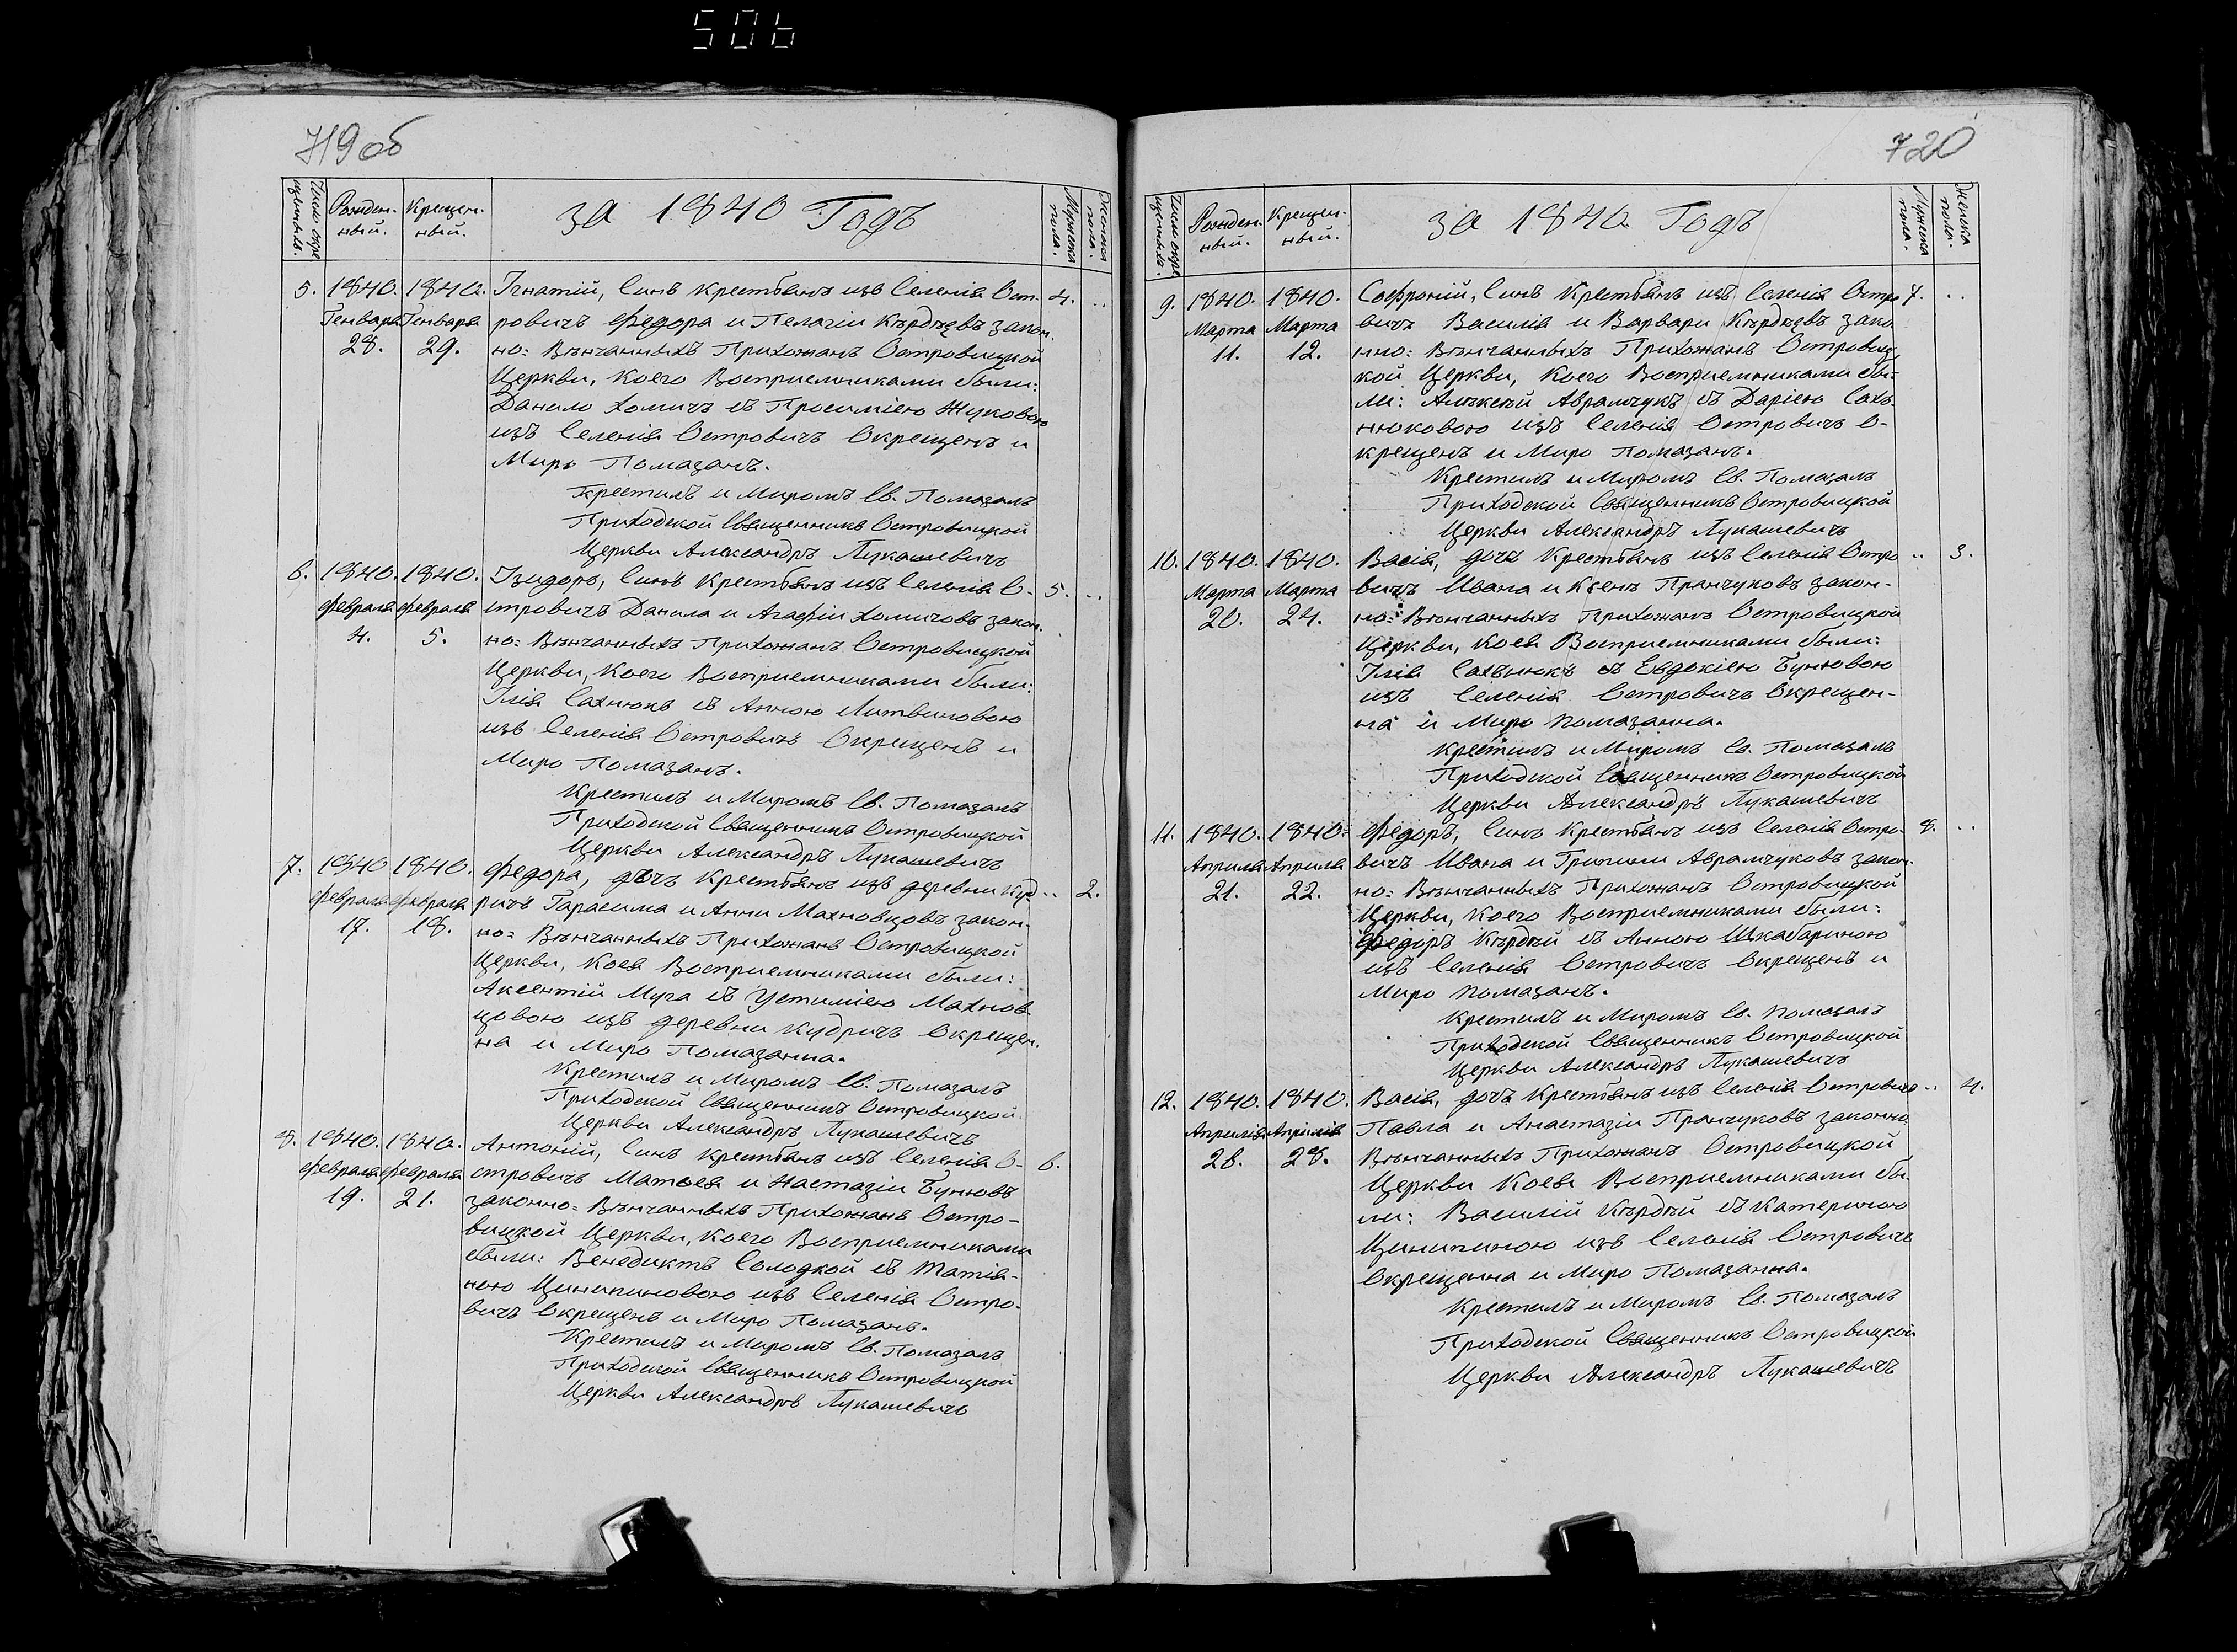 506
719 об
Число окре
щенныхъ.
Рожден-
ный.
Крещен-
ный.
за 1840 Годъ
Мужеска
пола.
Женска
пола.
5. 1840. 1840. Игнатій, Синъ Крестьянъ изъ Селенія Ост- 4. ..
Генваря Генваря ровичъ Федора и Пелагіи Кърдѣевъ закон-
28. 29. но: Вѣнчанныхъ Прихожанъ Островицкой
Церкви, Коего Воспріемниками были:
Данило Хомичъ съ Просимією Жуковою
изъ Селенія Островичъ Окрещенъ и
Миро Помазанъ.
Крестилъ и Миромъ Св. Помазалъ
Приходской Священникъ Островицкой
Церкви Александръ Лукашевичъ
6. 1840. 1840. Ізидоръ, Синъ Крестьянъ изъ Селенія О- 5. ..
Февраля Февраля стровичъ Данила и Агафіи Хомичовъ закон-
4. 5. но: Вѣнчанныхъ Прихожанъ Островицкой
Церкви, Коего Воспріемниками были:
Ілія Сахнюкъ съ Анною Литвиновою
изъ Селенія Островичъ Окрещенъ и
Миро Помазанъ.
Крестилъ и Миромъ Св. Помазалъ
Приходской Священникъ Островицкой
Церкви Александръ Лукашевичъ
7. 1840 1840. Федора, дочъ Крестьянъ изъ деревни Куд- .. 2.
Февраля Февраля ричъ Гарасима и Анни Махновцовъ закон-
17. 18. но: Вѣнчанныхъ Прихожанъ Островицкой
Церкви, Коея Воспріемниками были:
Аксентій Муга съ Устимією Махнов-
цовою изъ деревни Кудричъ Окрещен-
на и Миро Помазанна.
Крестилъ и Миромъ Св. Помазалъ
Приходской Священникъ Островицкой
Церкви Александръ Лукашевичъ
8. 1840. 1840. Антоній, Синъ Крестьянъ изъ Селенія О- 6.
Февраля Февраля стровичъ Матвея и Настазіи Бунювъ
19. 21. законно: Вѣнчанныхъ Прихожанъ Остро-
вицкой Церкви, Коего Воспріемниками
были: Венедиктъ Солодкой съ Татія-
ною Циципиновою изъ Селенія Остро-
вичъ Окрещенъ и Миро Помазанъ.
Крестилъ и Миромъ Св. Помазалъ
Приходской Священникъ Островицкой
Церкви Александръ Лукашевичъ
720
Число окре
щенныхъ.
Рожден-
ный.
Крещен-
ный.
за 1840 Годъ
Мужеска
пола.
Женска
пола.
9. 1840. 1840. Софроній, Синъ Крестьянъ изъ Селенія Остро 7. ..
Марта Марта вичъ Василія и Варвари Кърдѣевъ зако
11. 12. нно: Вѣнчанныхъ Прихожанъ Островиц
кой Церкви, Коего Воспріемниками бы-
ли: Алѣксѣй Аврамчукъ съ Дарією Сахъ-
нюковою изъ Селенія Островичъ О-
крещенъ и Миро Помазанъ.
Крестилъ и Миромъ Св. Помазалъ
Приходской Священникъ Островицкой
Церкви Александръ Лукашевичъ
10. 1840. 1840. Васія, дочъ Крестьянъ изъ Селенія Остро .. 3.
Марта Марта вичъ Ивана и Ксени Пранчуковъ закон-
20. 24. но: Вѣнчанныхъ Прихожанъ Островицкой
Церкви, Коея Воспріемниками были:
Ілія Сахънюкъ съ Евдокією Бунювою
изъ Селенія Островичъ Окрещен-
на и Миро помазанна.
Крестилъ и Миромъ Св. Помазалъ
Приходской Священникъ Островицкой
Церкви Александръ Лукашевичъ
11. 1840. 1840. Федоръ, Синъ Крестьянъ изъ Селенія Остро- 8. ..
Апрыля Апрыля вичъ Ивана и Грипини Аврамчуковъ закон-
21. 22. но: Вѣнчанныхъ Прихожанъ Островицкой
Церкви, Коего Воспріемниками были:
Федоръ Кърдѣй съ Анною Шкабариною
изъ Селенія Островичъ Окрещенъ и
Миро помазанъ.
Крестилъ и Миромъ Св. помазалъ
Приходской Священникъ Островицкой
Церкви Александръ Лукашевичъ
12. 1840. 1840. Васія, дочъ Крестьянъ изъ Селенія Островичъ .. 4.
Апрылія Апрылія Павла и Анастазіи Пранчуковъ законно:
28. Вѣнчанныхъ Прихожанъ Островицкой
Церкви Коея Воспріемниками бы-
ли: Василій Кърдѣй съ Катериною
Циципиною изъ Селенія Островичъ
Окрещенна и Миро Помазанна.
Крестилъ и Миромъ Св. Помазалъ
Приходской Священникъ Островицкой
Церкви Александръ Лукашевичъ